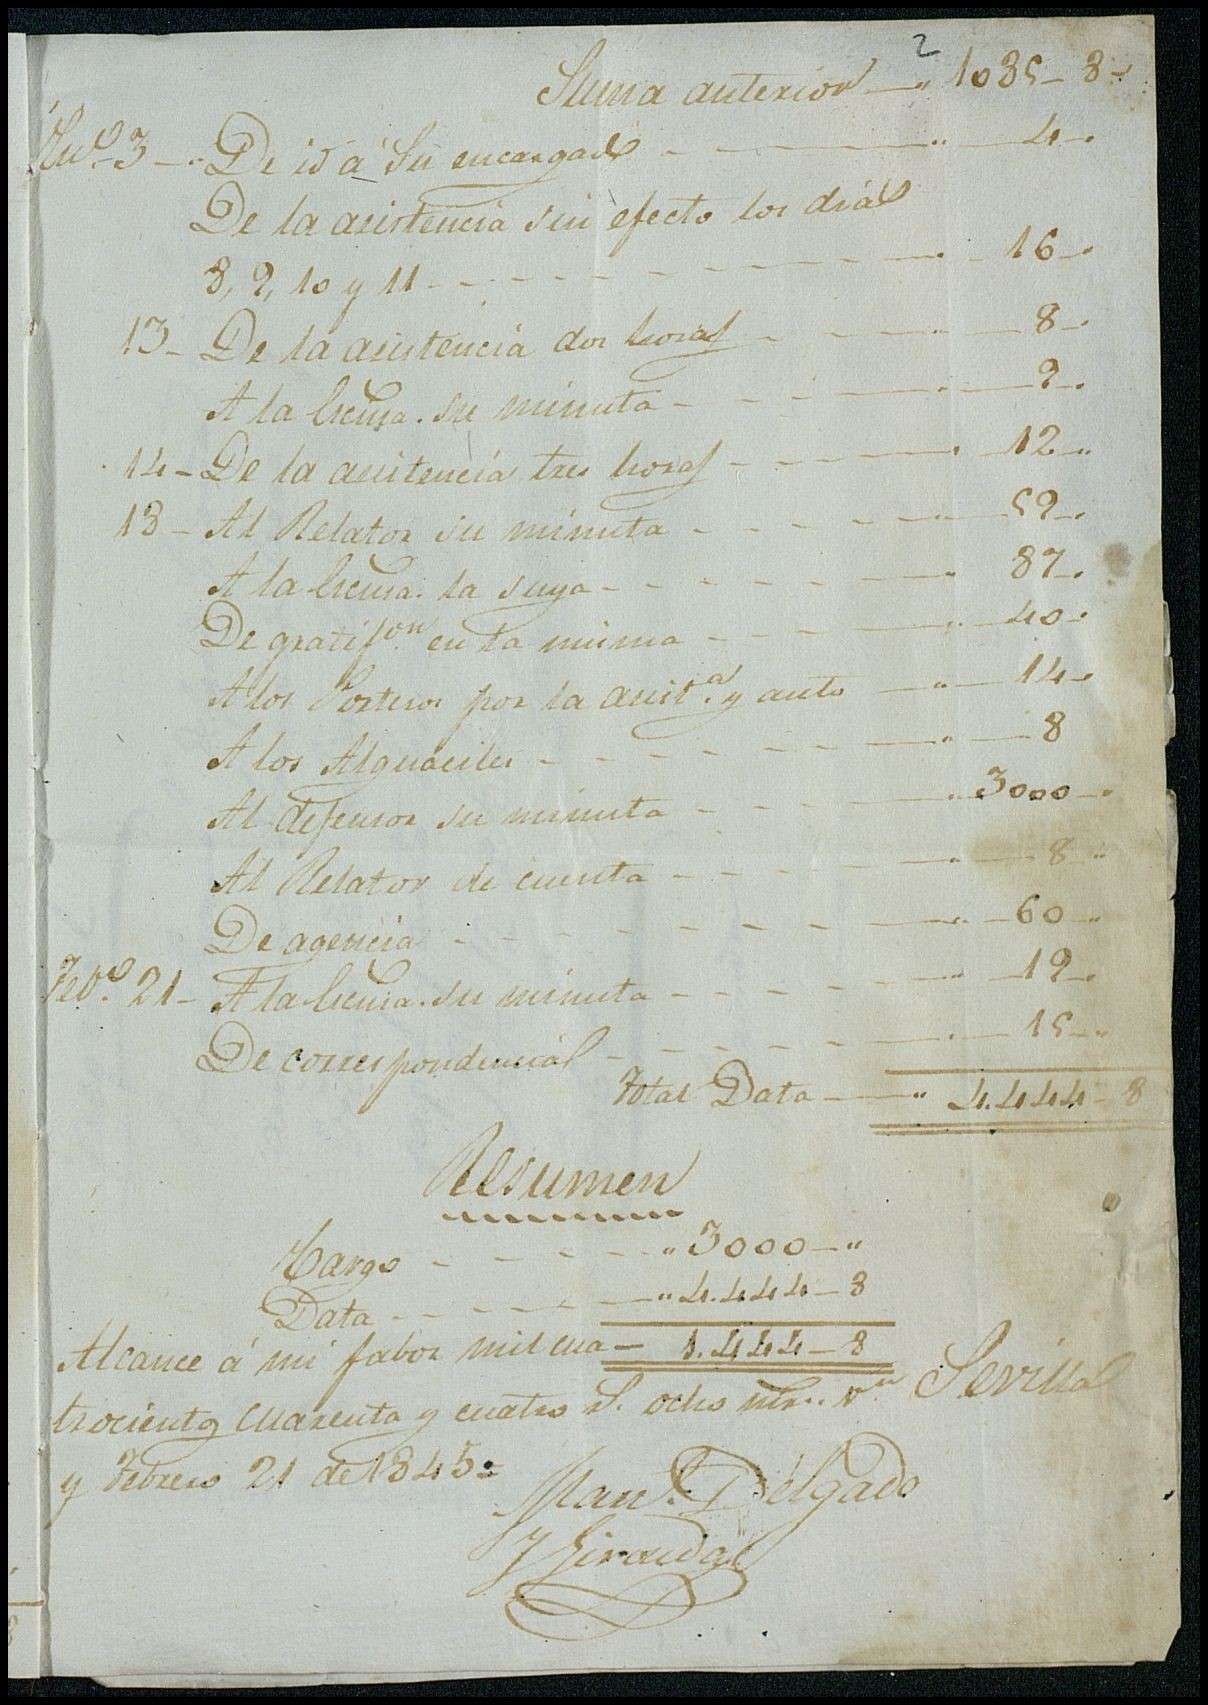 2
Suma anterior — " 1085 - 8 -
En.º 3 - De id á su encargado - - - " 4 - "
De la asistencia sin efecto los dias
8, 9, 10 y 11 - - - " 16 - "
13 - De la asistencia dos horas - - - " 8 - "
A la Escna. su minuta - - - " 9 - "
14 - De la asistencia tres horas - - - " 12 - "
18 - Al Relator su minuta - - - " 59 - "
A la Escna. la suya - - - " 87 - "
De gratif.on en la misma - - - " 40 - "
A los Porteros por la asist.a y auto — " 14 - "
A los Alguaciles - - - " 8
Al defensor su minuta - - - " 3000 - "
Al Relator de cuenta - - - " 8 "
De agencia - - - " 60 - "
Feb.º 21 - A la Escna. su minuta - - - " 19 - "
De correspondencia - - - " 15 - "
Total Data — " 4.444 - 8
Resumen
Cargo - - - " 3000 - "
Data - - - " 4.444 - 8
Alcance á mi fabor mil cua - 1.444 - 8
trocientos cuarenta y cuatro r.s ocho mrs. v.n Sevilla
y Febrero 21 de 1845 =
Man.l Delgado
y Giraldez